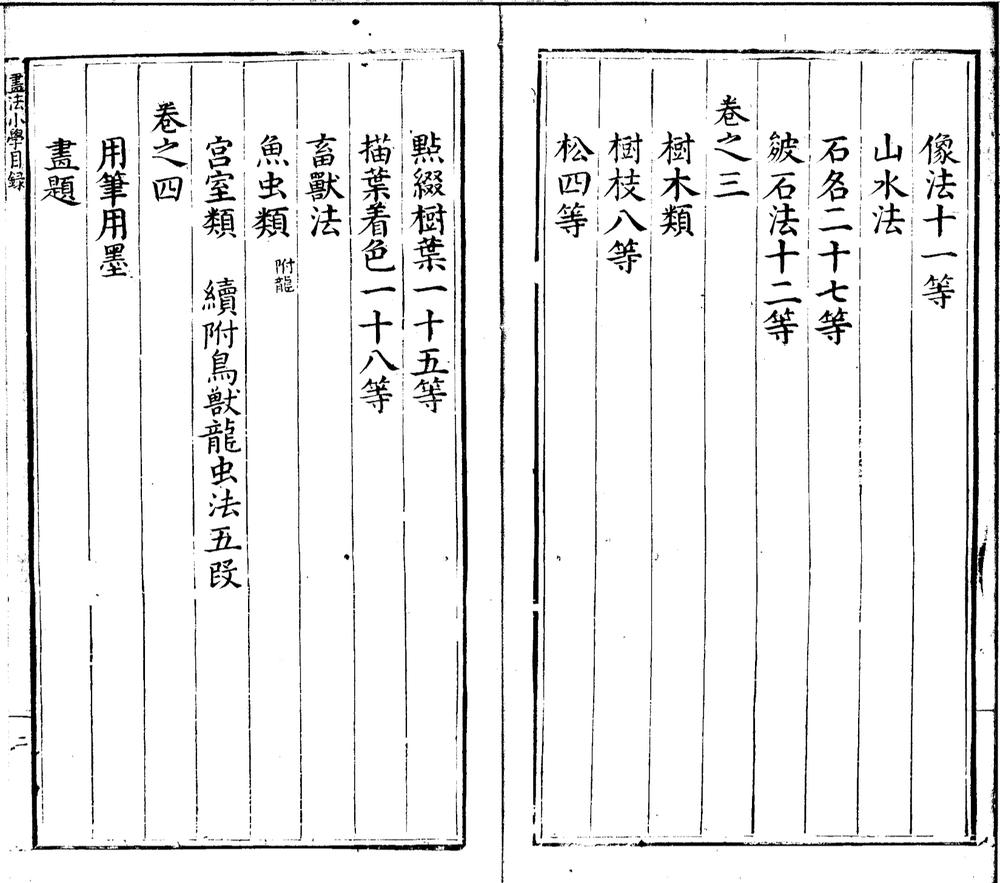 像法十一等
山水法
石名二十七等
皴石法十二等
卷之三
樹木類
樹枝八等
松四等
點綴樹葉一十五等
描葉着色一十八等
畜獸法
魚虫類 附龍
宮室類 續附鳥獸龍虫法五段
卷之四
用筆用墨
畫題
畫法小學目錄
二